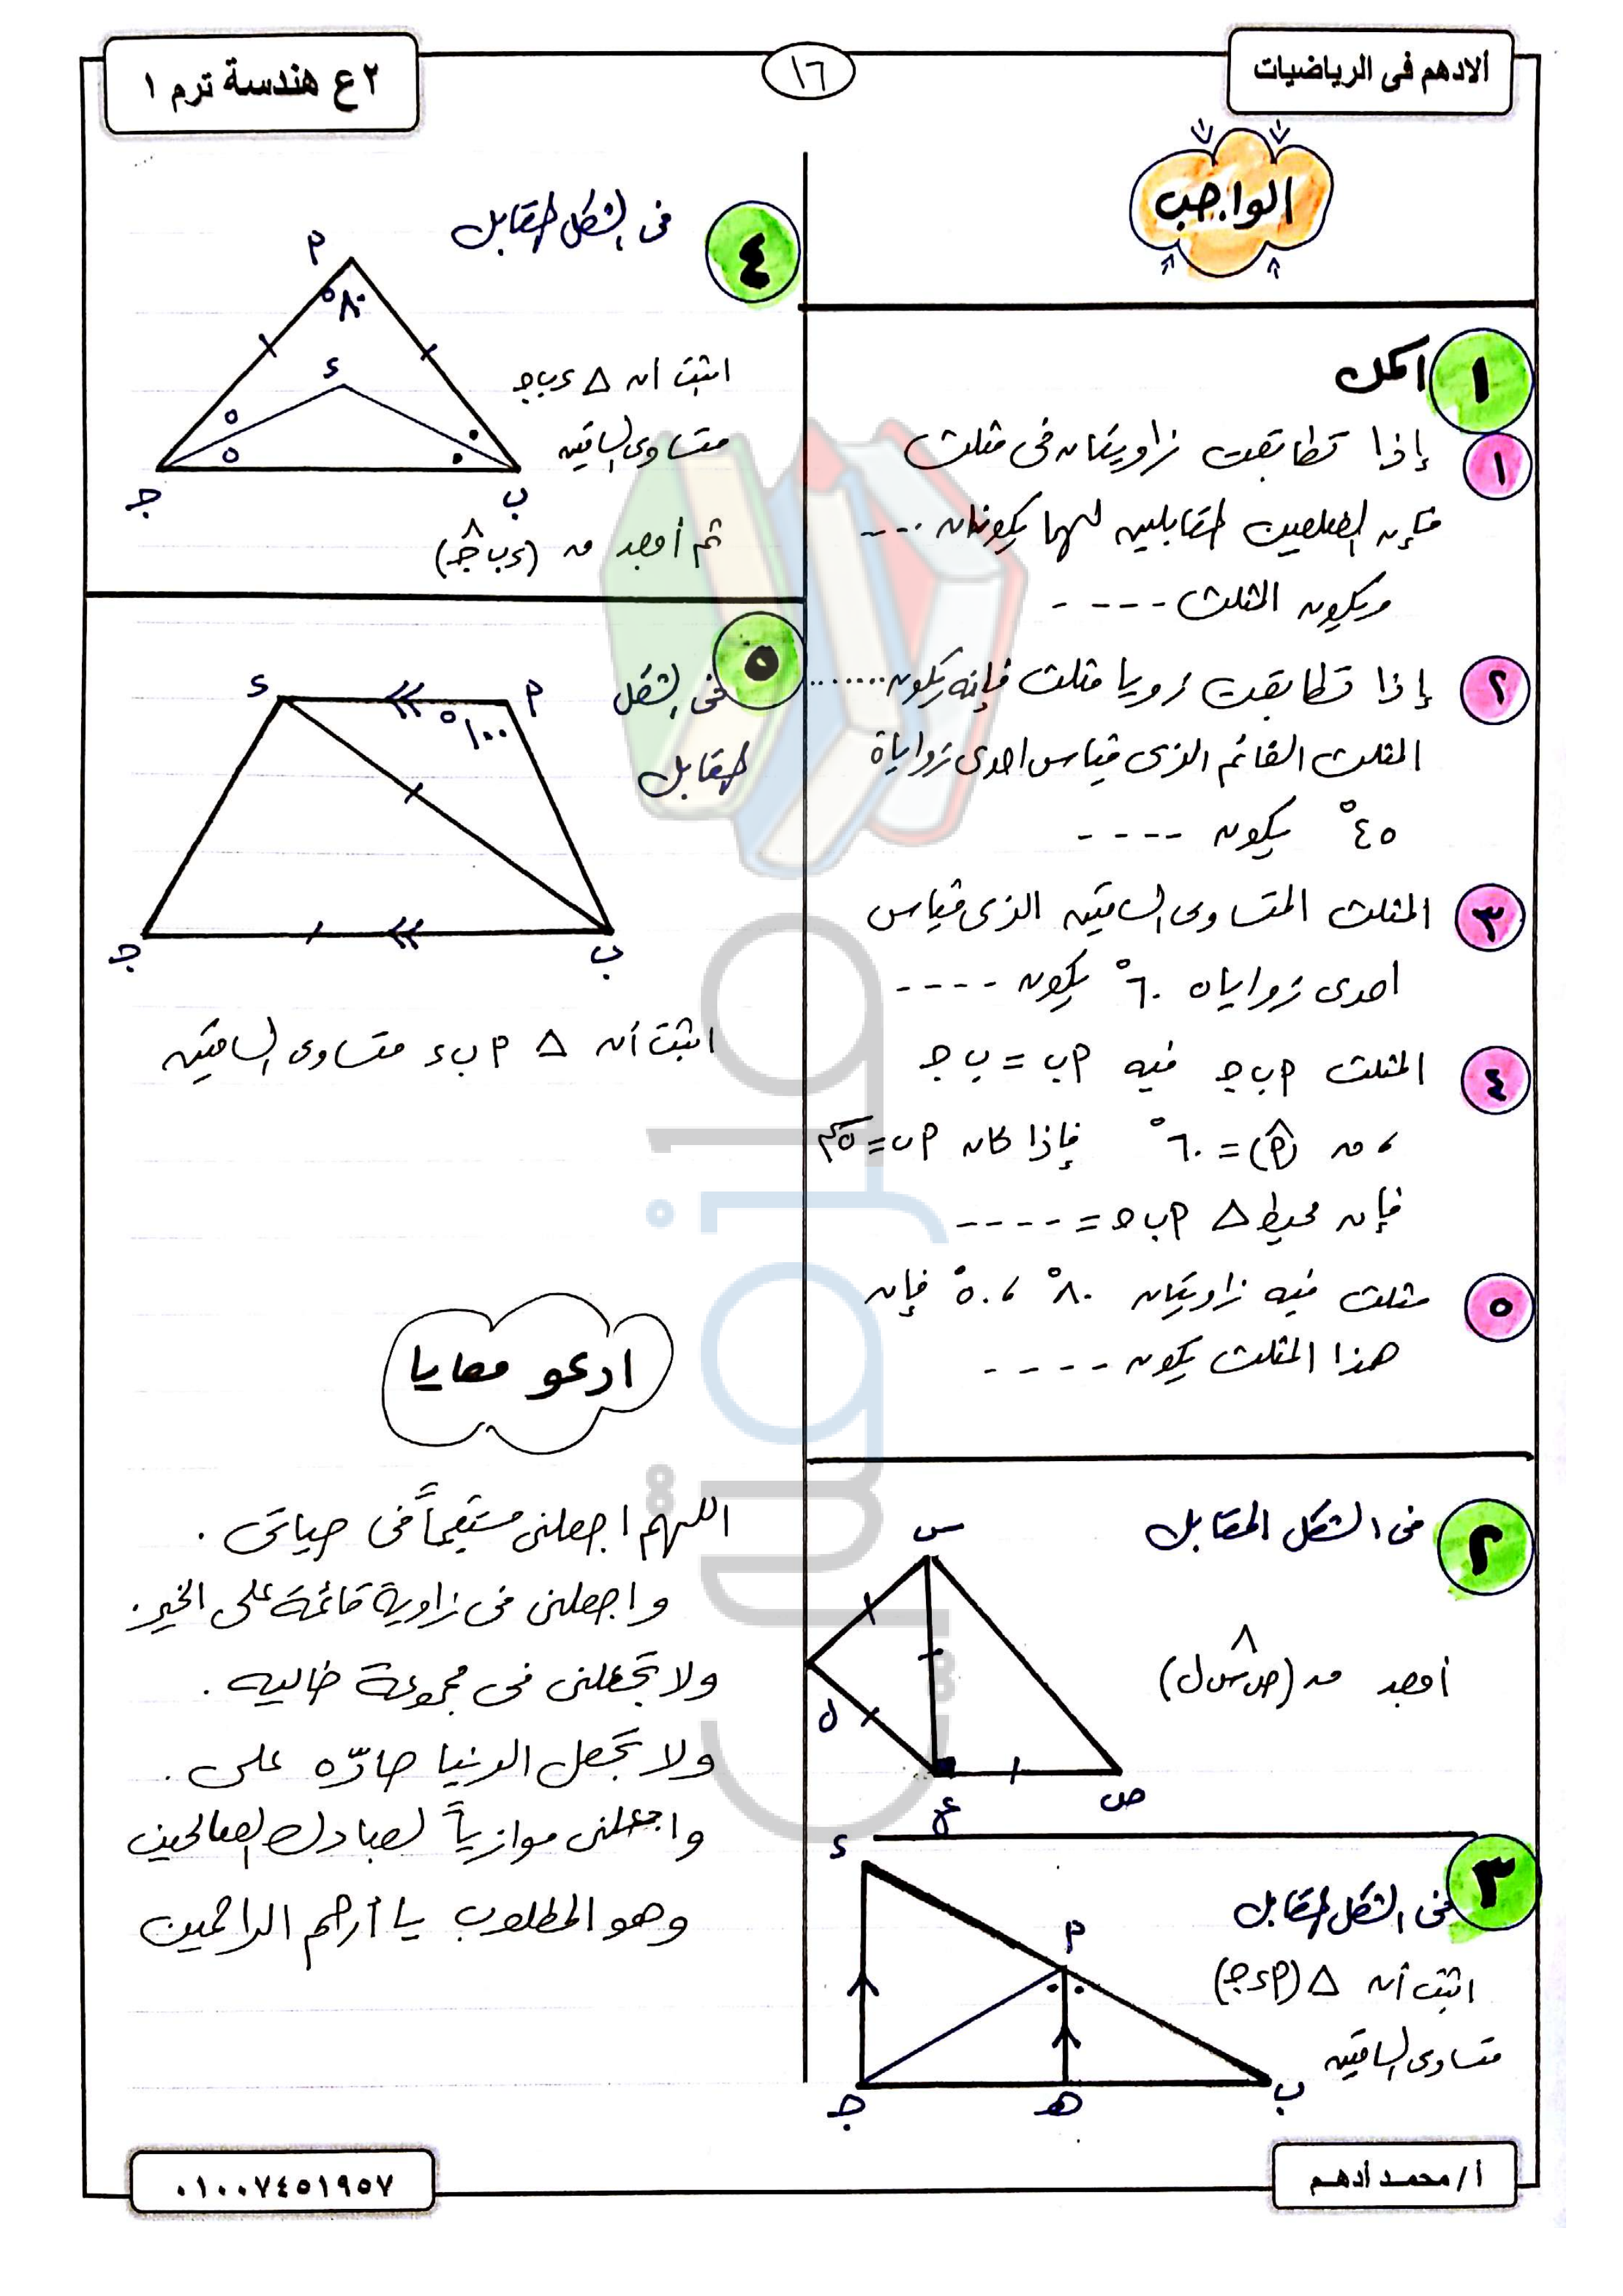 ألادهم فى الرياضيات
١٦
٢ع هندسة ترم ١
الواجب
١ اكمل
١ إذا تطابقت زاويتان فى مثلث
فإن الضلعين المقابلين لهما يكونان ....
ويكون المثلث ----
٢ إذا تطابقت زوايا مثلث فإنه يكون ........
المثلث القائم الذى قياس احدى زواياة
٤٥° يكون ----
٣ المثلث المتساوى الساقين الذى قياس
احدى زواياه ٦٠° يكون ----
٤ المثلث ٢ب ج فيه ٢ب = ب ج
، ق (٢) = ٦٠° فإذا كان ٢ب = ٥سم
فإن محيط △ ٢ب ج = ----
٥ مثلث فيه زاويتان ٨٠° ، ٥٠° فإن
هذا المثلث يكون ----
٢ فى الشكل المقابل
أوجد ق (ص س ل)
س
ل
ع
ص
٣ فى الشكل المقابل
اثبت أن △ (٢ء ج)
متساوى الساقين
ء
٢
ج
ه
ب
٤ فى الشكل المقابل
٢
٨٠°
ء
اثبت أن △ ءب ج
متساوى الساقين
ج
ب
ثم أوجد ق (ءب ج)
٥ فى الشكل
المقابل
ء
٢
١٠٠°
ج
ب
اثبت أن △ ٢ب ء متساوى الساقين
ادعو معايا
اللهم اجعلنى مستقيماً فى حياتى .
واجعلنى فى زاوية قائمة على الخير .
ولا تجعلنى فى مجموعة خاليه .
ولا تجعل الدنيا حادّه على .
واجعلنى موازياً لعبادك الصالحين
وهو المطلوب يا أرحم الراحمين
أ/ محمد أدهم
٠١٠٠٧٤٥١٩٥٧